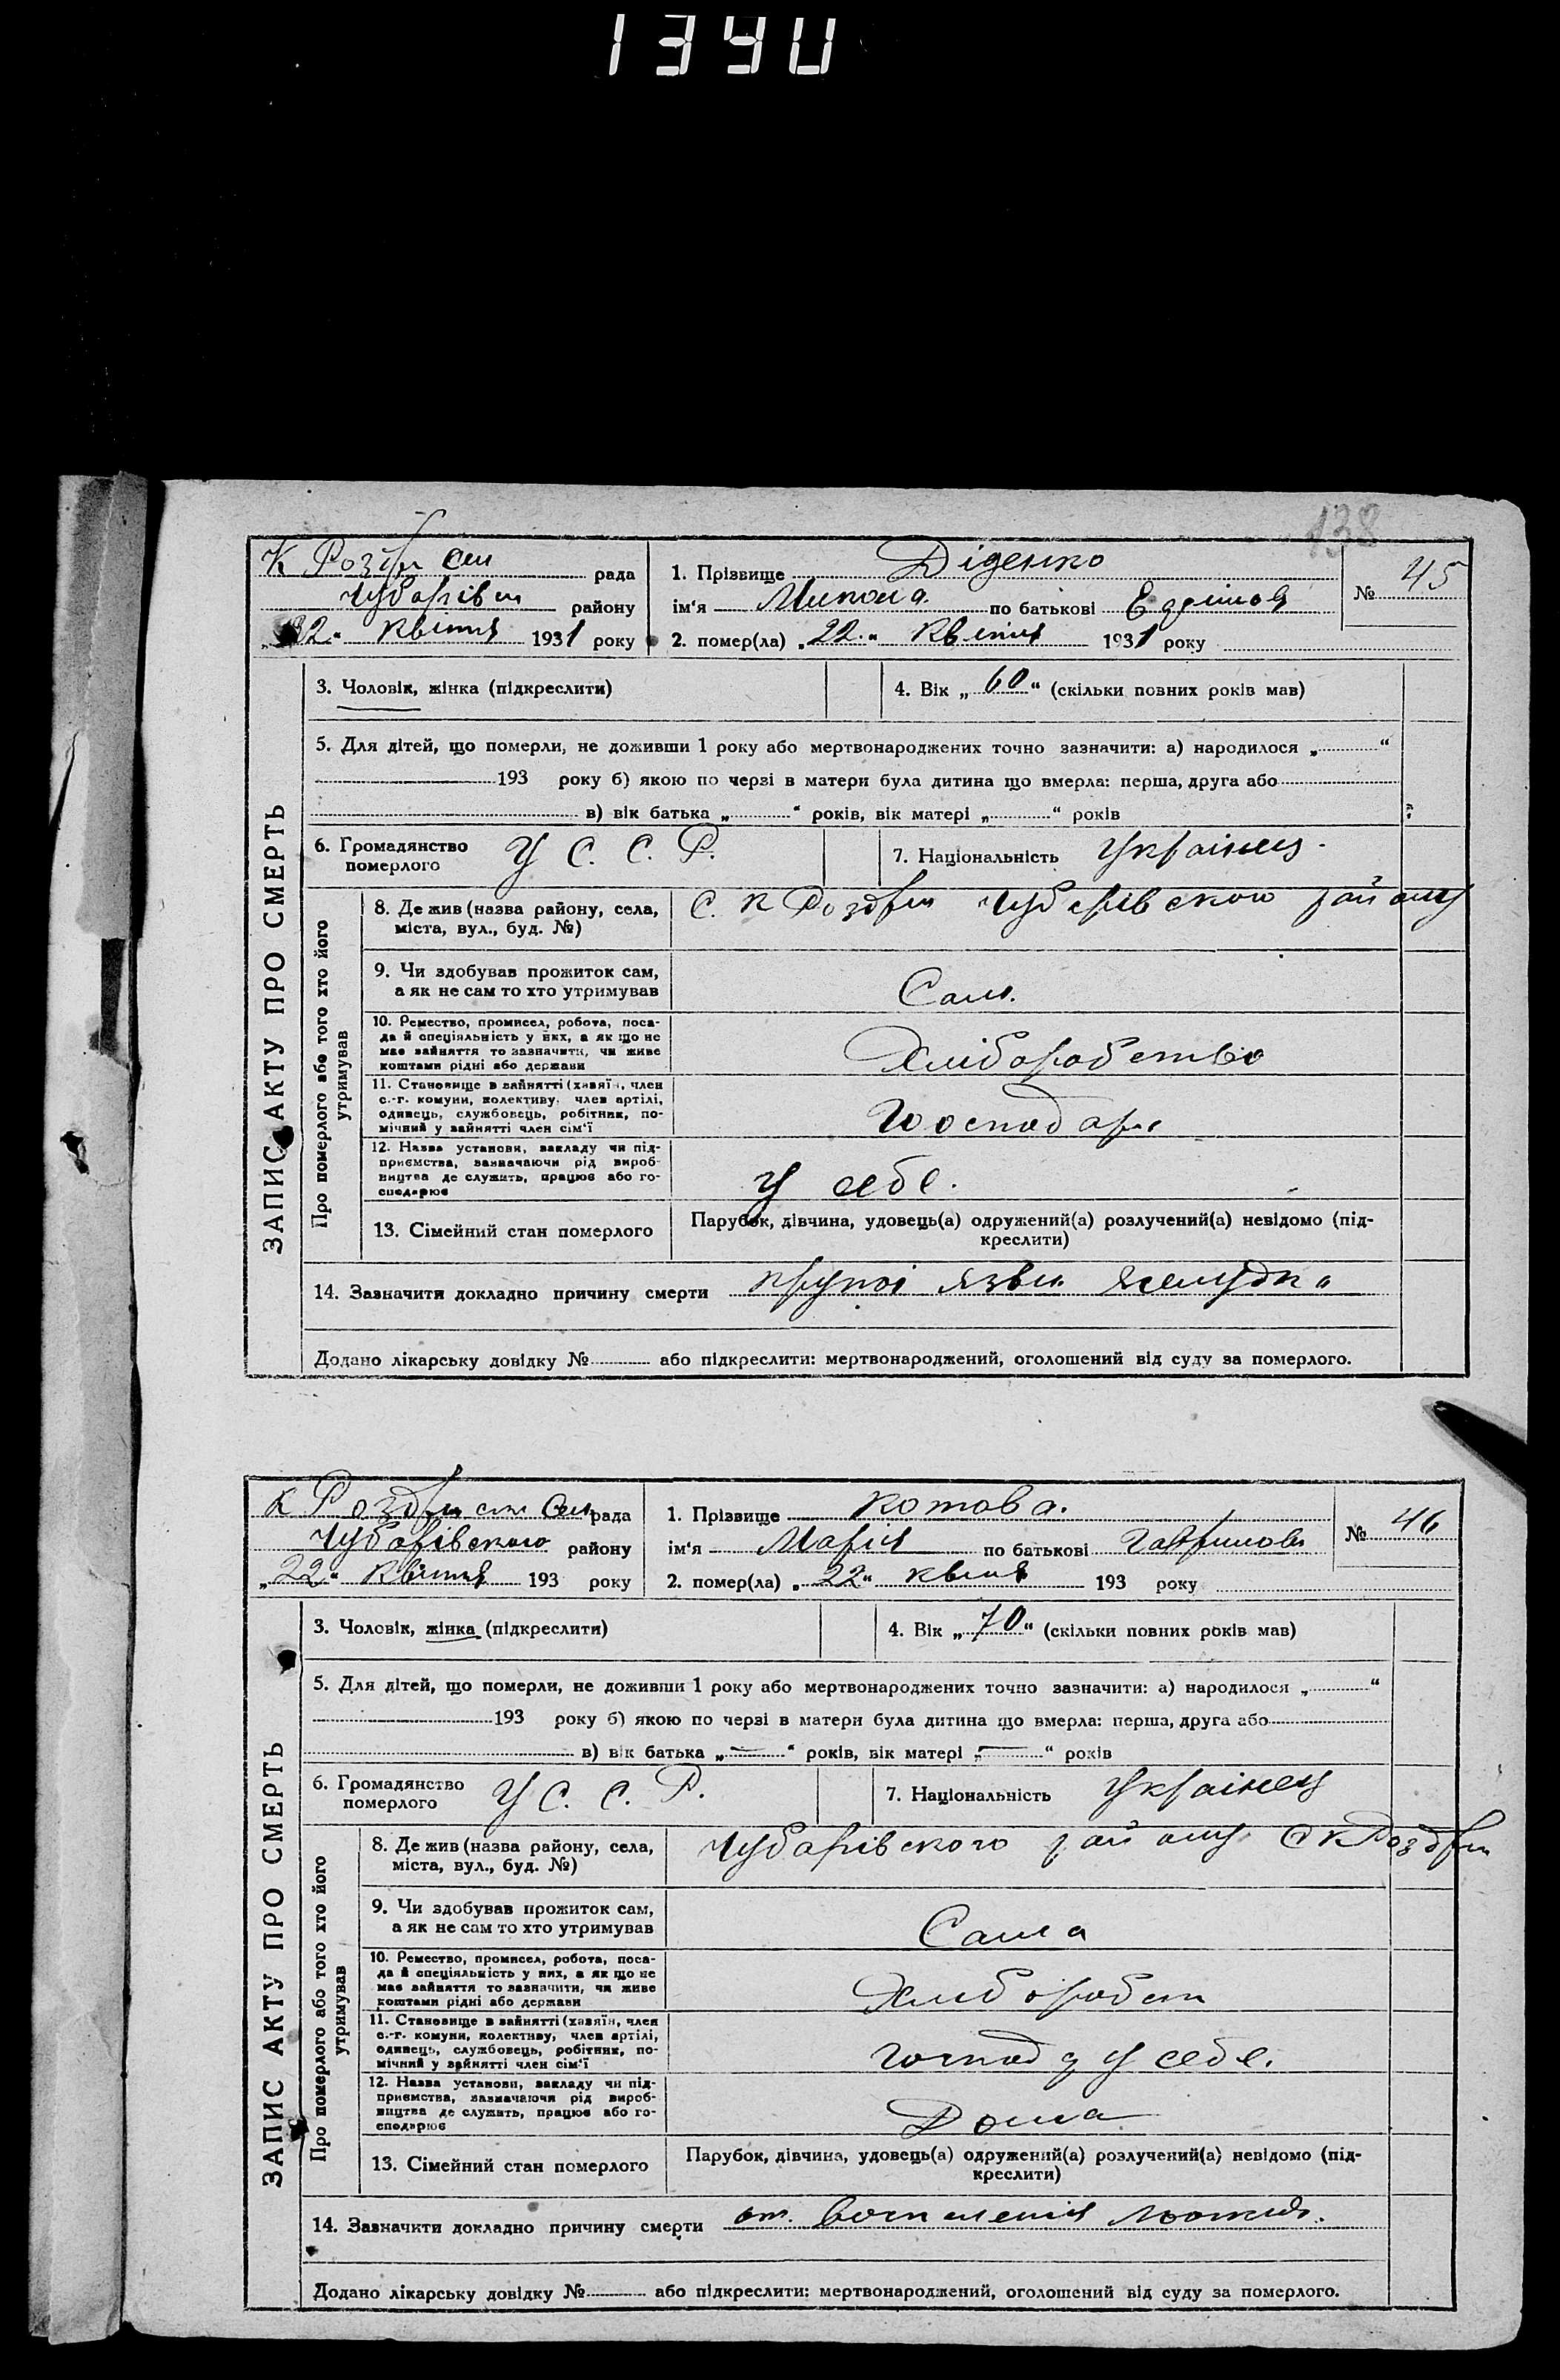 1340
138
К Роздри Сіл рада
Чубарівск району
„22“ Квітня 1931 року
1. Прізвище Діденко
№ 45
ім‘я Микола по батькові
2. помер(ла) „22“ Квітня 1931 року
3. Чоловік, жінка (підкреслити)
4. Вік „60“ (скільки повних років мав)
5. Для дітей, що померли, не доживши 1 року або мертвонароджених точно зазначити: а) народилося „ “
193 року б) якою по черзі в матери була дитина що вмерла: перша, друга або
в) вік батька „ “ років, вік матері „ “ років
6. Громадянство
померлого
У С. С. Р.
7. Національність Українец
ЗАПИС АКТУ ПРО СМЕРТЬ
Про померлого або того хто його
утримував
8. Де жив (назва району, села,
міста, вул., буд. №)
С. К Роздри Чубарівского району
9. Чи здобував прожиток сам,
а як не сам то хто утримував
Сам.
10. Ремество, промисел, робота, поса-
да й спеціяльність у них, а як що не
має зайняття то зазначити, чи живе
коштами рідні або держави
Хліборобство
11. Становище в зайнятті (хазяїн, член
с.-г. комуни, колективу, член артілі,
одинець, службовець, робітник, по-
мічний у зайнятті член сім‘ї
Господарь
12. Назва установи, закладу чи під-
приємства, зазначаючи рід вироб-
ництва де служить, працює або го-
сподарює
У себе.
13. Сімейний стан померлого
Парубок, дівчина, удовець(а) одружений(а) розлучений(а) невідомо (під-
креслити)
14. Зазначити докладно причину смерти язви желудка
Додано лікарську довідку № або підкреслити: мертвонароджений, оголошений від суду за померлого.
К Роздри Сіл рада
Чубарівского району
„22“ Квітня 193 року
1. Прізвище Котова.
№ 46
ім‘я Марія по батькові Гаврилова
2. помер(ла) „22“ квітня 193 року
3. Чоловік, жінка (підкреслити)
4. Вік „70“ (скільки повних років мав)
5. Для дітей, що померли, не доживши 1 року або мертвонароджених точно зазначити: а) народилося „ “
193 року б) якою по черзі в матери була дитина що вмерла: перша, друга або
в) вік батька „—“ років, вік матері „—“ років
6. Громадянство
померлого
У С. С. Р.
7. Національність Українец
ЗАПИС АКТУ ПРО СМЕРТЬ
Про померлого або того хто його
утримував
8. Де жив (назва району, села,
міста, вул., буд. №)
Чубарівского району С К Роздри
9. Чи здобував прожиток сам,
а як не сам то хто утримував
Сама
10. Ремество, промисел, робота, поса-
да й спеціяльність у них, а як що не
має зайняття то зазначити, чи живе
коштами рідні або держави
Хлиборобст
11. Становище в зайнятті (хазяїн, член
с.-г. комуни, колективу, член артілі,
одинець, службовець, робітник, по-
мічний у зайнятті член сім‘ї
у себе.
12. Назва установи, закладу чи під-
приємства, зазначаючи рід вироб-
ництва де служить, працює або го-
сподарює
Дома
13. Сімейний стан померлого
Парубок, дівчина, удовець(а) одружений(а) розлучений(а) невідомо (під-
креслити)
14. Зазначити докладно причину смерти от. воспаления
Додано лікарську довідку № або підкреслити: мертвонароджений, оголошений від суду за померлого.